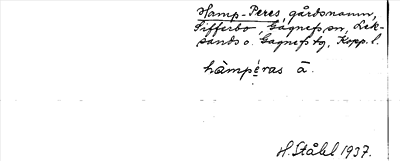 Hamp-Peres, gårdsnamn,
Sifferbo, Gagnefs sn, Lek-
sands o. Gagnefs tg, Kopp. l.
hàmpéras ā.
H. Ståhl 1937.